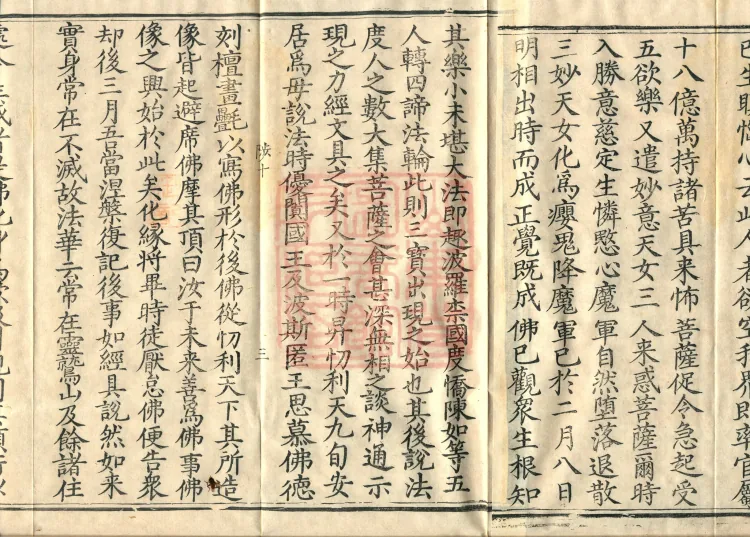 十八億萬持諸苦具来怖 菩薩促令急起受
五欲樂又遣妙意天女三 人来惑菩薩爾時
入勝意慈定生憐愍心魔 軍自然堕落退散
三妙天女化為癭鬼降魔 軍已於二月八日
明相出時而成正覺既成 佛已觀衆生根知
其樂小未堪大法即趣波羅柰國度憍陳如等五
人轉四諦法輪此則三寶出現之始也其後說法
度人之數大集菩薩之會甚深無相之談神通示
現之力經文具之矣又於一時昇忉利天九旬安
居為母說法時優闐國王及波斯匿王思慕佛德
三
刻檀畫氎以寫佛形於後佛從忉利天下其所造
像皆起避席佛摩其頂曰汝于未来善為佛事佛
像之興始於此矣化縁将畢時徒厭怠佛便告衆
却後三月吾當涅槃復記後事如經具說然如来
實身常在不滅故法華云常在靈鷲山及餘諸住